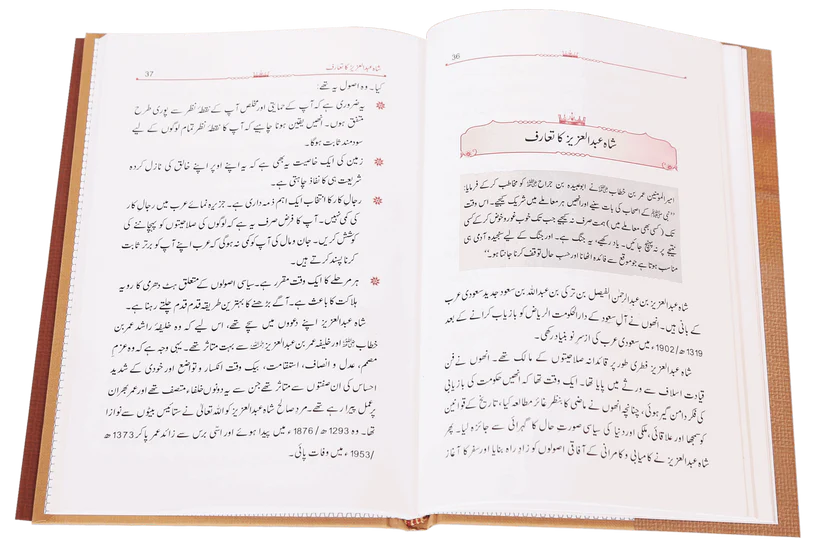 36
شاہ عبدالعزیز کا تعارف
امیرالمؤمنین عمر بن خطاب نے ابوعبیدہ بن جراح کو مخاطب کر کے فرمایا:
"نبی کے اصحاب کی بات سنیے اور انھیں ہر معاملے میں شریک کیجیے۔ اس وقت
تک (کسی بھی معاملے میں) ہمت صرف نہ کیجیے جب تک خوب غور و خوض کر کے کسی
نتیجے پر نہ پہنچ جائیں۔ یاد رکھیے، یہ جنگ ہے۔ اور جنگ کے لیے سنجیدہ آدمی ہی
مناسب ہوتا ہے جو موقع سے فائدہ اٹھانا اور حسب حال توقف کرنا جانتا ہو۔"
شاہ عبدالعزیز بن عبدالرحمٰن الفیصل بن ترکی بن عبداللہ بن سعود جدید سعودی عرب
کے بانی ہیں۔ انھوں نے آلِ سعود کے دارالحکومت الریاض کو بازیاب کرانے کے بعد
1319ھ/1902ء میں سعودی عرب کی ازسرِنو بنیاد رکھی۔
شاہ عبدالعزیز فطری طور پر قائدانہ صلاحیتوں کے مالک تھے۔ انھوں نے فن
قیادت اسلاف سے ورثے میں پایا تھا۔ ایک وقت تھا کہ انھیں حکومت کی بازیابی
کی فکر دامن گیر ہوئی، چنانچہ انھوں نے ماضی کا بنظر غائر مطالعہ کیا، تاریخ کے قوانین
کو سمجھا اور علاقائی، ملکی اور دنیا کی سیاسی صورتِ حال کا گہرائی سے جائزہ لیا۔ پھر
شاہ عبدالعزیز نے کامیابی و کامرانی کے آفاقی اصولوں کو زادِ راہ بنایا اور سفر کا آغاز
37
شاہ عبدالعزیز کا تعارف
کیا۔ وہ اصول یہ تھے:
یہ ضروری ہے کہ آپ کے حمایتی اور مخلص آپ کے نقطۂ نظر سے پوری طرح
متفق ہوں۔ انھیں یقین ہونا چاہیے کہ آپ کا نقطۂ نظر تمام لوگوں کے لیے
سودمند ثابت ہوگا۔
زمین کی ایک خاصیت یہ بھی ہے کہ یہ اپنے اوپر اپنے خالق کی نازل کردہ
شریعت ہی کا نفاذ چاہتی ہے۔
رجال کار کا انتخاب ایک اہم ذمہ داری ہے۔ جزیرہ نمائے عرب میں رجال کار
کی کمی نہیں۔ آپ کا فرض صرف یہ ہے کہ لوگوں کی صلاحیتوں کو پہچاننے کی
کوشش کریں۔ جان و مال کی آپ کو کمی نہ ہوگی کہ عرب اپنے آپ کو برتر ثابت
کرنا پسند کرتے ہیں۔
ہر مرحلے کا ایک وقت مقرر ہے۔ سیاسی اصولوں کے متعلق ہٹ دھرمی کا رویہ
ہلاکت کا باعث ہے۔ آگے بڑھنے کا بہترین طریقہ قدم قدم چلتے رہنا ہے۔
شاہ عبدالعزیز اپنے دعووں میں سچے تھے، اس لیے کہ وہ خلیفۂ راشد عمر بن
خطاب اور خلیفہ عمر بن عبدالعزیز سے بہت متاثر تھے۔ یہی وجہ ہے کہ وہ عزم
مصمم، عدل و انصاف، استقامت، بیک وقت انکسار و تواضع اور خودی کے شدید
احساس کی ان صفتوں سے متاثر تھے جن سے یہ دونوں خلفاء متصف تھے اور عمر بھر ان
پر عمل پیرا رہے تھے۔ مرد صالح شاہ عبدالعزیز کو اللہ تعالیٰ نے ستائیس بیٹوں سے نوازا
تھا۔ وہ 1293ھ/1876ء میں پیدا ہوئے اور اسّی برس سے زائد عمر پا کر 1373ھ
/1953ء میں وفات پائی۔